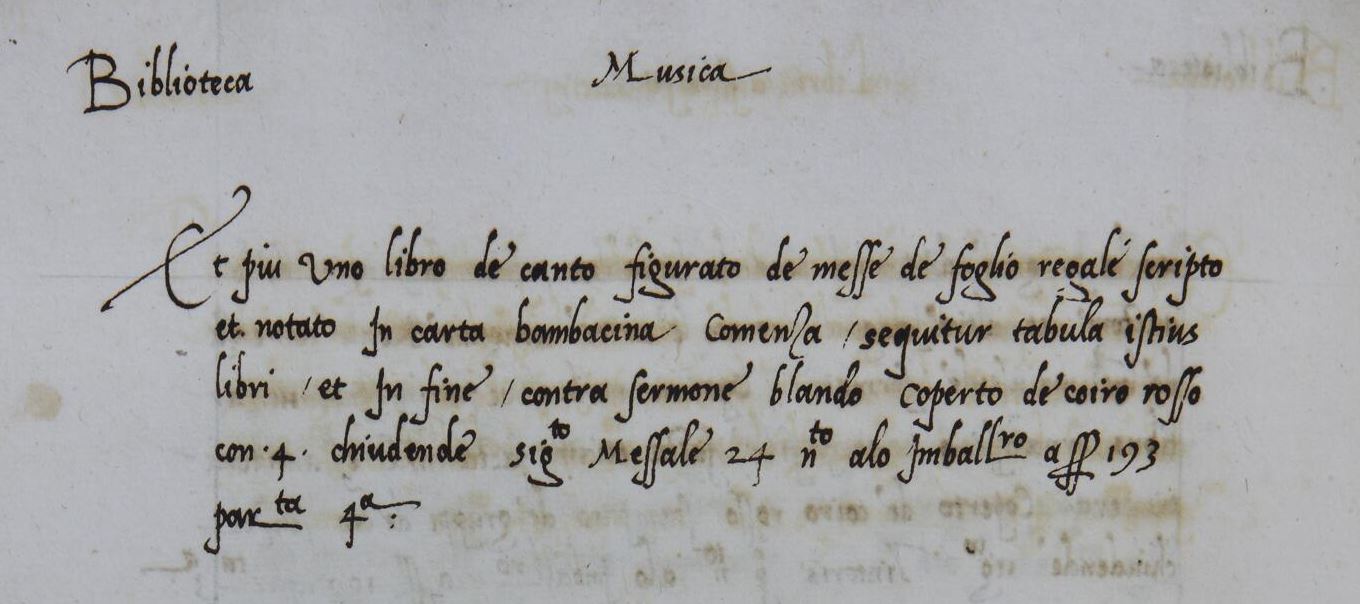 Biblioteca Musica
Et piu Uno libro de canto figurato de messe de foglio regale scripto
et. notato In carta bambacina Comenza / sequitur tabula istius
libri / et In fine / contra sermone blando coperto de coiro rosso
con .4. chiudende sig^to Messale 24 n^to alo Imball^ro a 193
par^ta 4^a: